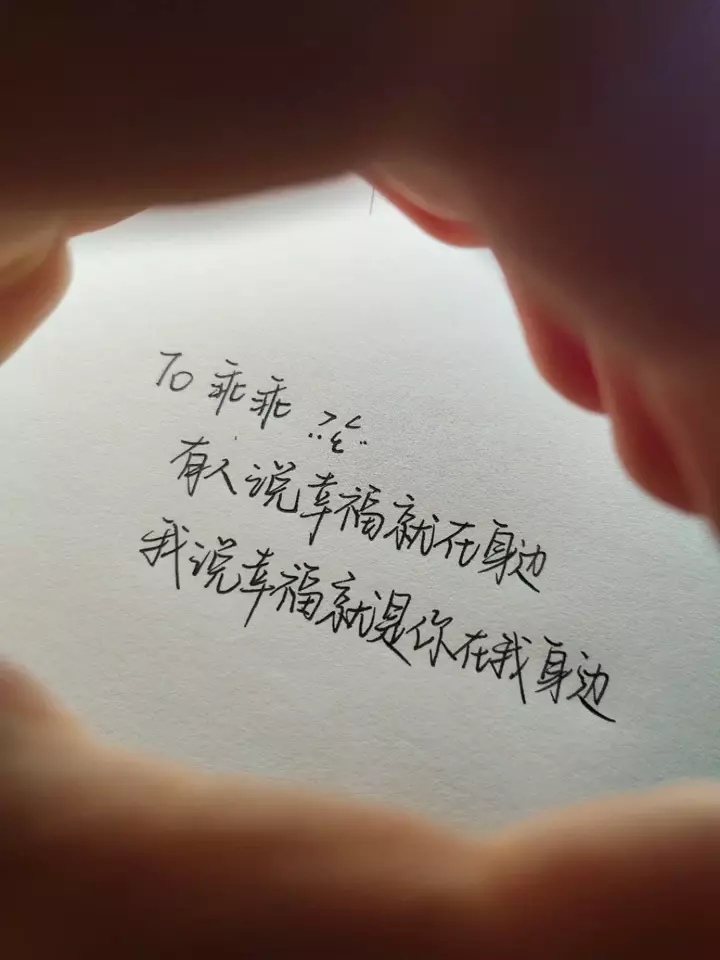 To 乖乖
有人说幸福就在身边
我说幸福就是你在我身边